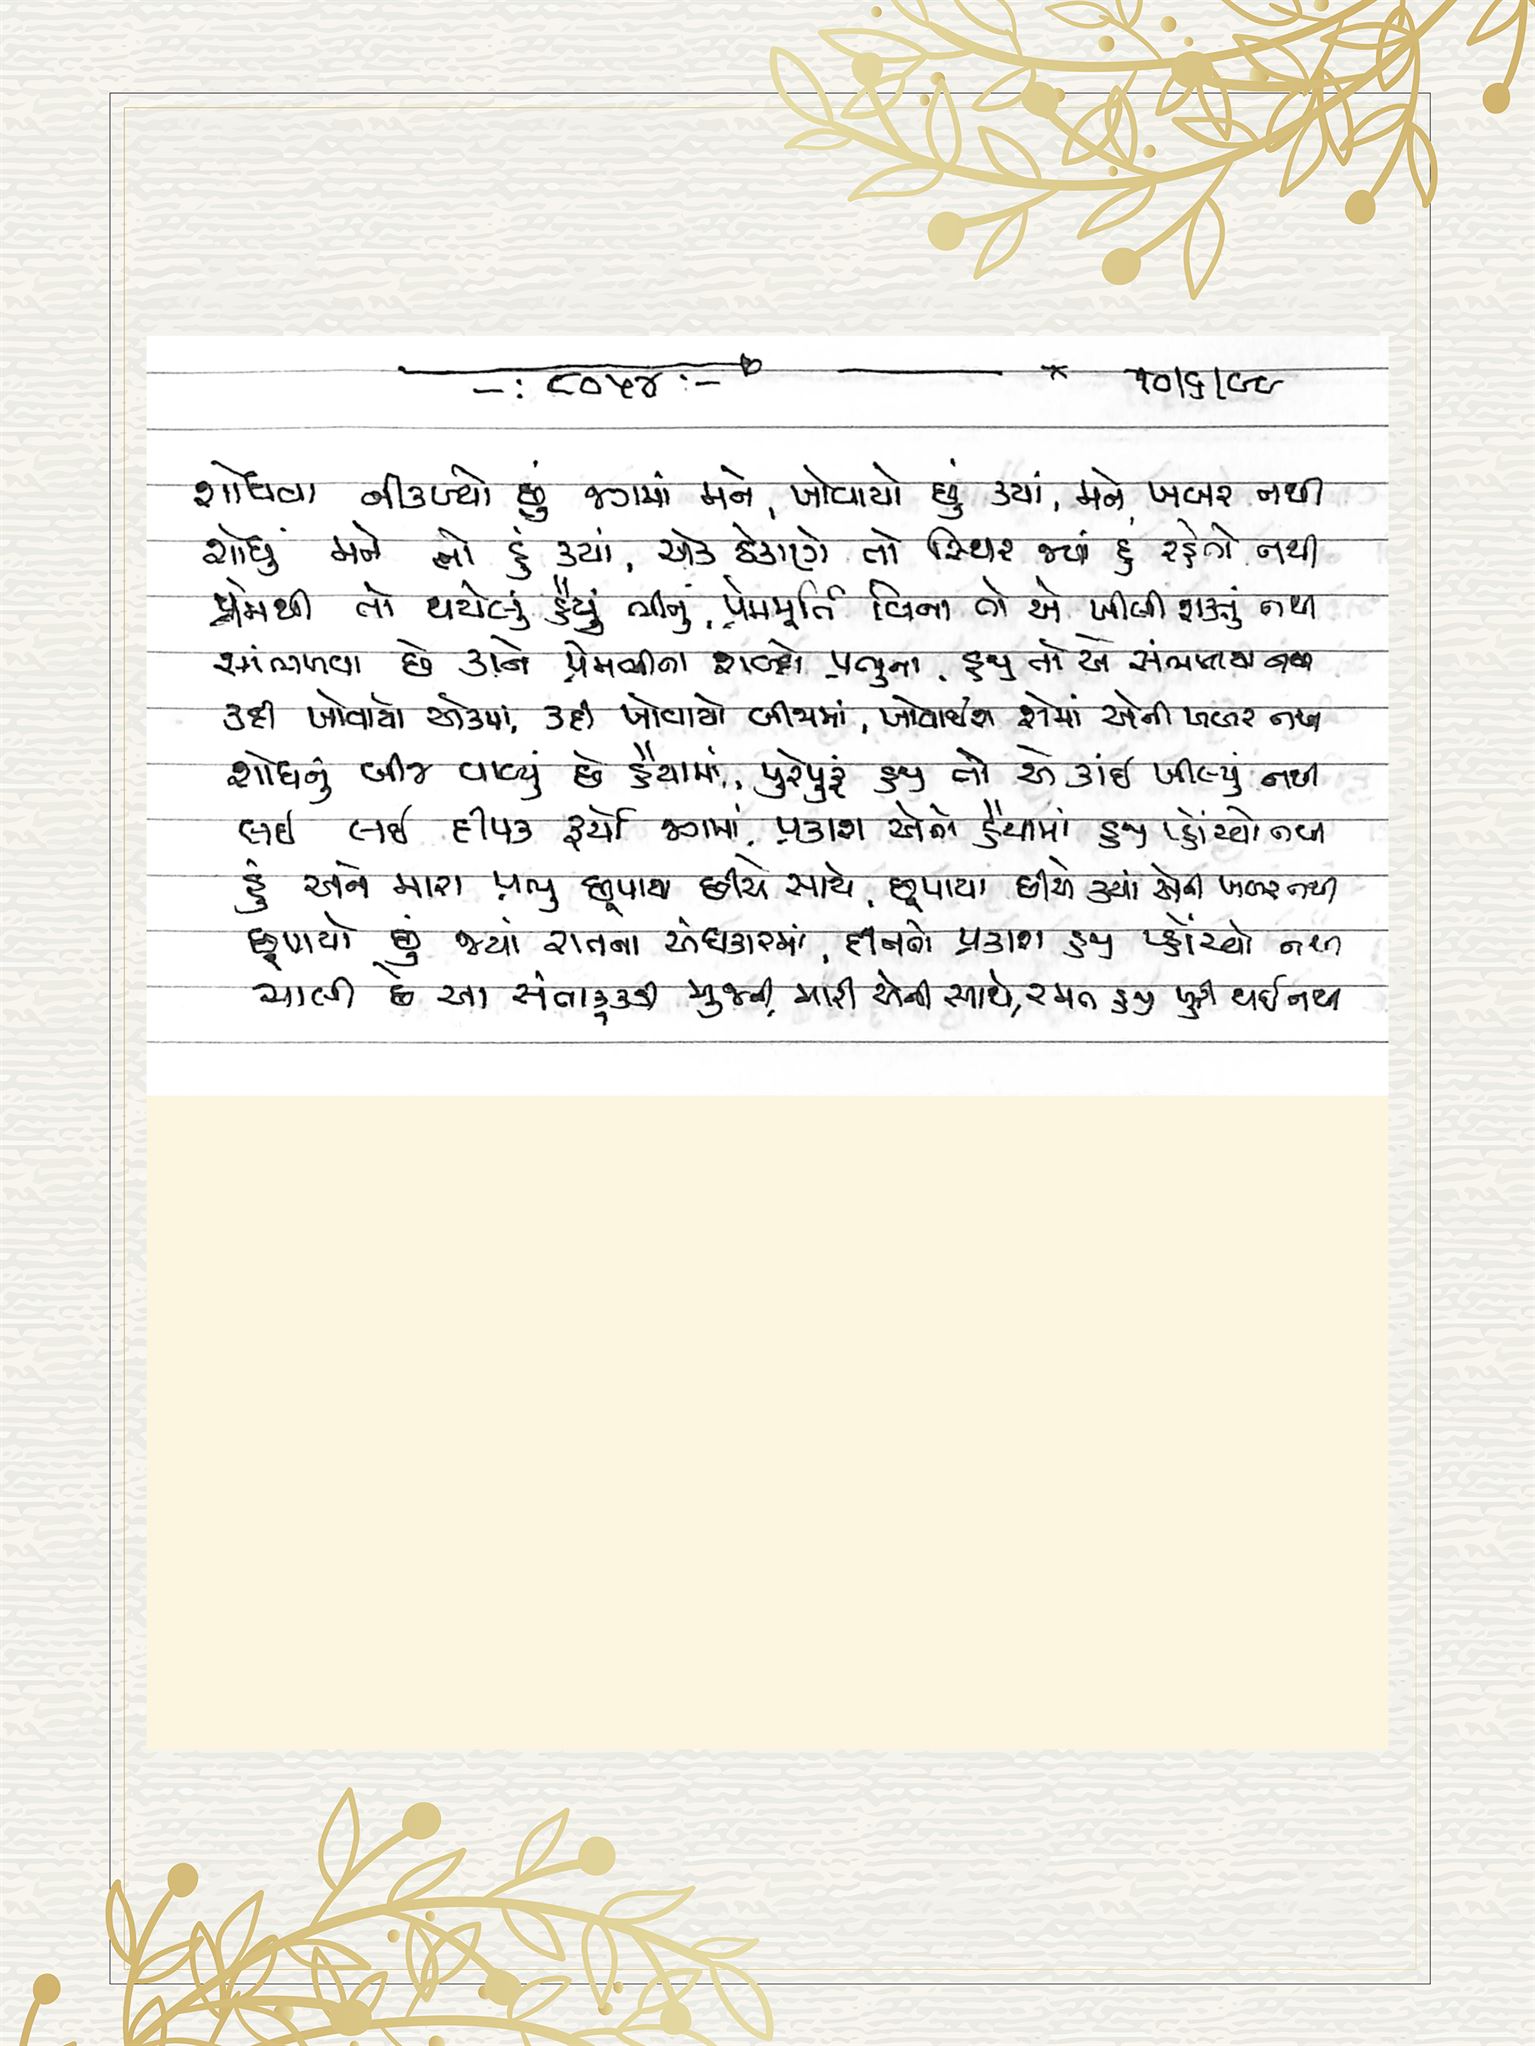 -: ૮૦૫૪ :- × ૧૦/૬/૯૯
શોધવા નીકળ્યો છું જગમાં મને, ખોવાયો છું ક્યાં, મને ખબર નથી
શોધું મને તો હું ક્યાં, એક ઠેકાણે તો સ્થિર જ્યાં હું રહેતો નથી
પ્રેમથી તો થયેલું હૈયું ભીનું, પ્રેમમૂર્તિ વિના તો એ ખીલી શક્તું નથી
સાંભળવા છે કાને પ્રેમભીના શબ્દો પ્રભુના, હજુ તો એ સંભળાયા નથી
કદી ખોવાયો એકમાં, કદી ખોવાયો બીજામાં, ખોવાઈશ શેમાં એની ખબર નથી
શોધનું બીજ વાવ્યું છે હૈયામાં, પુરેપુરૂં હજુ તો એ કાંઈ ખીલ્યું નથી
લઇ લઇ દીપક ફર્યો જગમાં, પ્રકાશ એનો હૈયામાં હજુ પ્હોંચ્યો નથી
હું અને મારા પ્રભુ છૂપાયા છીએ સાથે, છૂપાયા છીએ ક્યાં એની ખબર નથી
છૂપાયો છું જ્યાં રાતના અંધકારમાં, દીનનો પ્રકાશ હજુ પ્હોંચ્યો નથી
ચાલી છે આ સંતાકૂકડી મુજની, મારી એની સાથે, રમત હજુ પુરી થઈ નથી